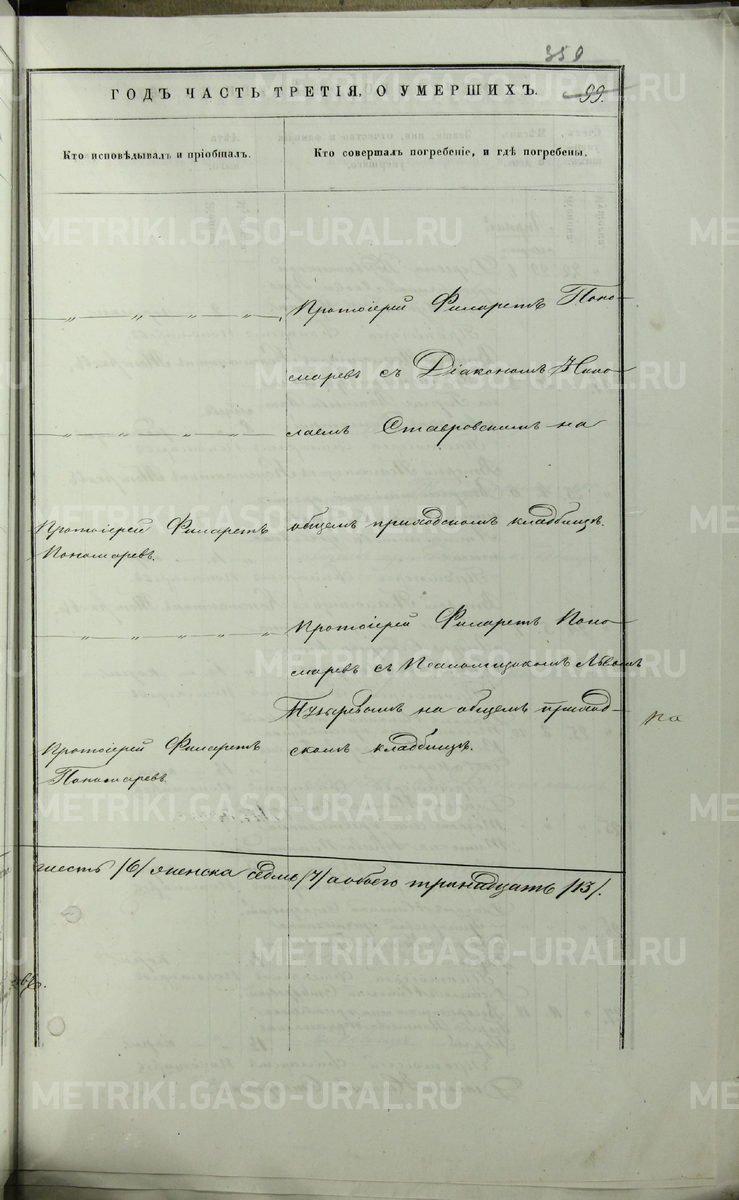 359
ГОДЪ ЧАСТЬ ТРЕТІЯ, О УМЕРШИХЪ.
99.
Кто исповѣдывалъ и пріобщалъ.
Кто совершалъ погребеніе, и гдѣ погребены.
Протоіерей Филаретъ Поно-
маревъ съ Діакономъ Нико-
лаемъ Ставровскимъ на
Протоіерей Филаретъ
Пономаревъ.
общемъ приходскомъ кладбищѣ.
Протоіерей Филаретъ Поно-
маревъ съ Псаломщикомъ Львомъ
на общемъ приход-
скомъ кладбищѣ.
Протоіерей Филаретъ
Пономаревъ.
шесть /6/ женска седмь /7/ а обоего тринадцать /13/.
METRIKI.GASO-URAL.RU